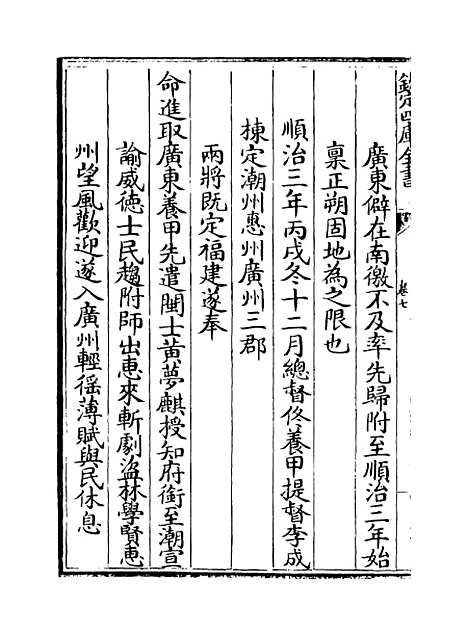 欽定四庫全書
卷七
廣東僻在南徼不及率先歸附至順治三年始
禀正朔固地為之限也
順治三年丙戌冬十二月總督佟養甲提督李成
棟定潮州惠州廣州三郡
兩將既定福建遂奉
命進取廣東養甲先遣閩士黄夢麒授知府銜至潮宣
諭威德士民趨附師出惠來斬劇盗林學賢惠
州望風歡迎遂入廣州輕徭薄賦與民休息